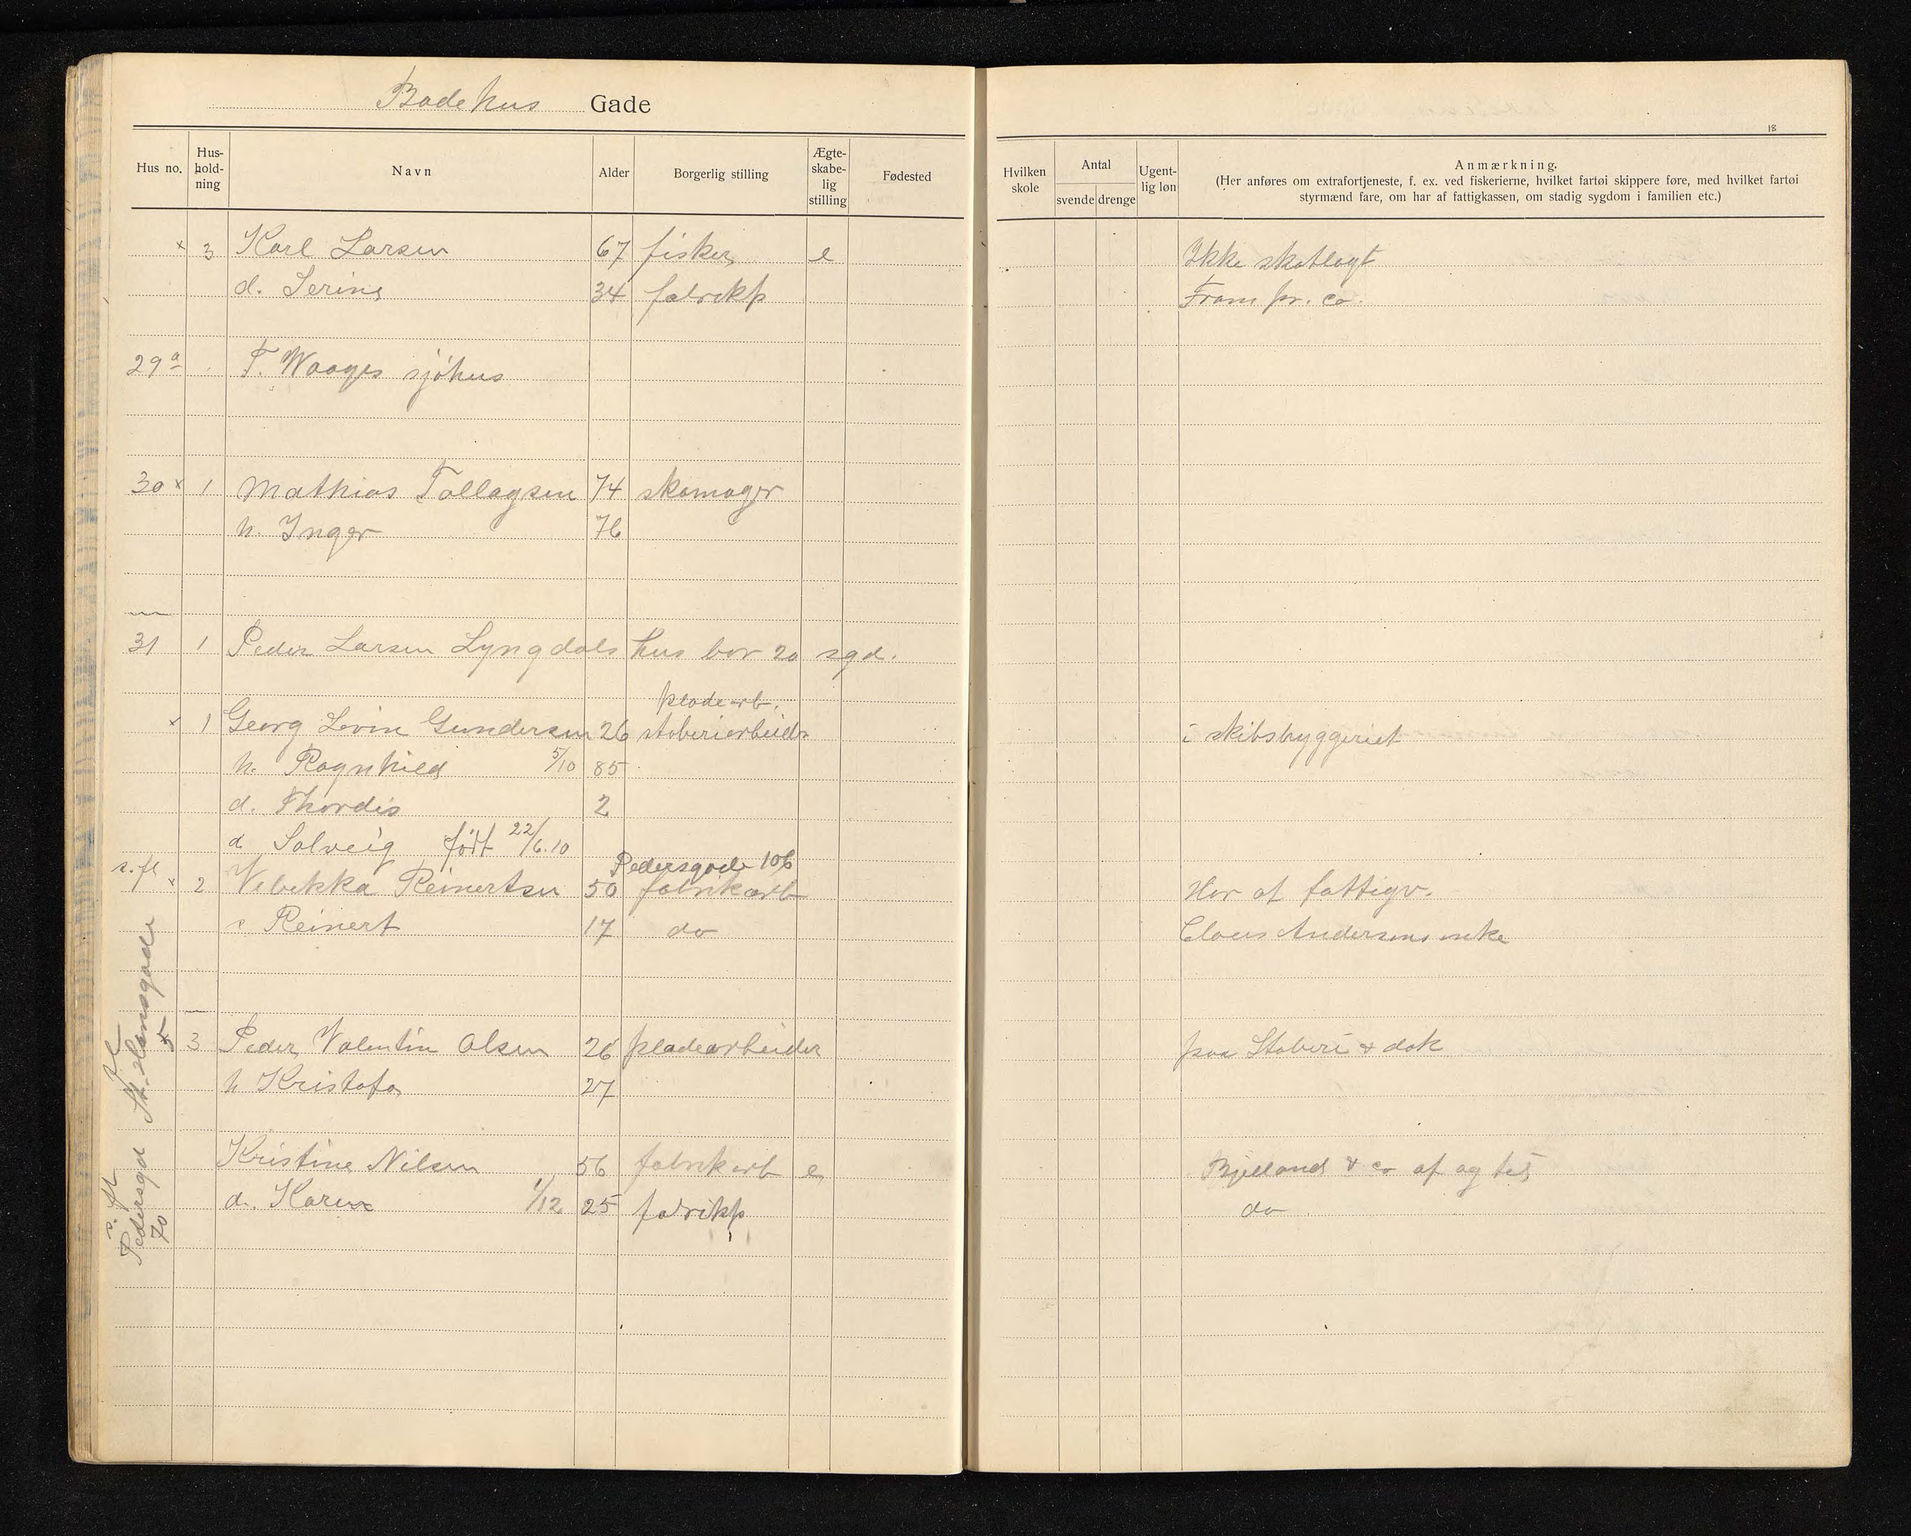 Badehus Gade
18
Hus no. Hus-hold-ning Navn Alder Borgerlig stilling Ægte-skabe-lig stilling Fødested Hvilken skole Antal svende drenge Ugent-lig løn Anmærkning.
(Her anføres om extrafortjeneste, f. ex. ved fiskerierne, hvilket fartøi skippere føre, med hvilket fartøi
styrmænd fare, om har af fattigkassen, om stadig sygdom i familien etc.)
x 3 Karl Larsen 67 fisker e Ikke skatlagt
d. Serine 34 fabrikp Fram pr. co.
29a T. Waages sjøhus
30 x 1 Mathias Tallagsen 74 skomager
h. Inger 76
31 1 Peder Larsen Lyngdals hus bor 20 sgd.
pladearb.
x 1 Georg Lovin Gundersen 26 støberiarbeider i skibsbyggeriet
h. Ragnhild 5/10 85
d. Thordis 2
d Solveig født 22/6.10
Pedersgade 106
s. fl x 2 Vebekka Reinertsen 50 fabrikarb Har af fattigv.
s Reinert 17 do Claus Andersens enke
fl St. Hansgade 5
3 Peder Valentin Olsen 26 pladearbeider paa Støberi & dok
h Kristofa 27
s. fl Pedersgd 70
Kristine Nilsen 56 fabrikarb e Bjelland & co af og til
d. Karen 1/12 25 fabrikp do